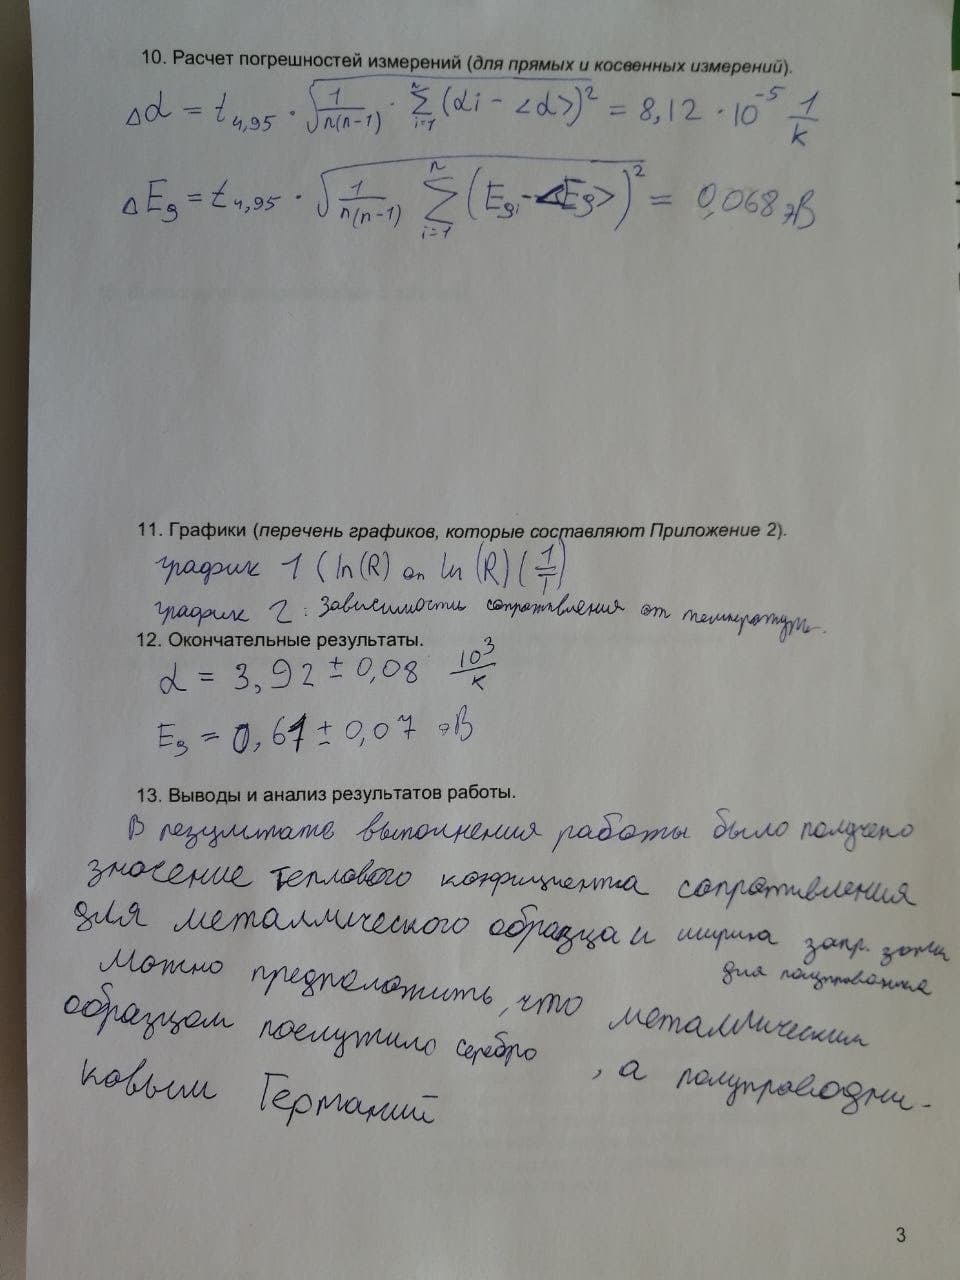 10. Расчет погрешностей измерений (для прямых и косвенных измерений).
Δα = t₄,₉₅ · √(1/(n(n-1)) · Σᵢ₌₁ⁿ (αi - <α>)²) = 8,12 · 10⁻⁵ 1/K
ΔEg = t₄,₉₅ · √(1/(n(n-1)) Σᵢ₌₁ⁿ (Egᵢ - <Eg>)²) = 0,068 эВ
11. Графики (перечень графиков, которые составляют Приложение 2).
график 1 (ln(R) от ln (R) (1/T)
график 2 : Зависимости сопротивления от температуры.
12. Окончательные результаты.
α = 3,92 ± 0,08 10³/K
Eg = 0,67 ± 0,07 эВ
13. Выводы и анализ результатов работы.
В результате выполнения работы было получено
значение теплового коэфициента сопротивления
для металлического образца и ширина запр. зоны
для полупроводника
Можно предположить, что металлическим
образцом послужило серебро , а полупроводни-
ковым Германий
3